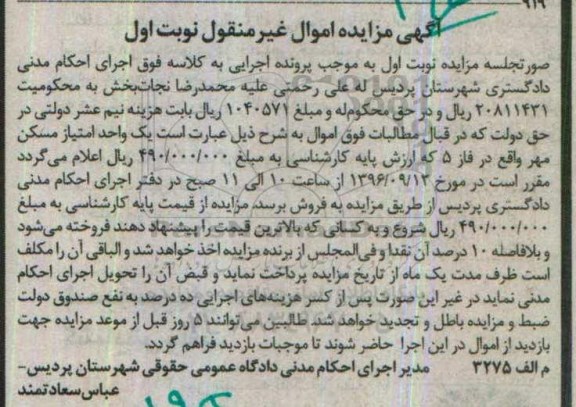 ۹۱۹
آگهی مزایده اموال غیر منقول نوبت اول
صورتجلسه مزایده نوبت اول به موجب پرونده اجرایی به کلاسه فوق اجرای احکام مدنی
دادگستری شهرستان پردیس له علی رحمتی علیه محمدرضا نجات‌بخش به محکومیت
۲۰۸۱۱۴۳۱ ریال و در حق محکوم‌له و مبلغ ۱۰۴۰۵۷۱ ریال بابت هزینه نیم عشر دولتی در
حق دولت که در قبال مطالبات فوق اموال به شرح ذیل عبارت است یک واحد امتیاز مسکن
مهر واقع در فاز ۵ که ارزش پایه کارشناسی به مبلغ ۴۹۰/۰۰۰/۰۰۰ ریال اعلام می‌گردد
مقرر است در مورخ ۱۳۹۶/۰۹/۱۲ از ساعت ۱۰ الی ۱۱ صبح در دفتر اجرای احکام مدنی
دادگستری پردیس از طریق مزایده به فروش برسد. مزایده از قیمت پایه کارشناسی به مبلغ
۴۹۰/۰۰۰/۰۰۰ ریال شروع و به کسانی که بالاترین قیمت را پیشنهاد دهند فروخته می‌شود
و بلافاصله ۱۰ درصد آن نقدا و فی‌المجلس از برنده مزایده اخذ خواهد شد و الباقی آن را مکلف
است ظرف مدت یک ماه از تاریخ مزایده پرداخت نماید و قبض آن را تحویل اجرای احکام
مدنی نماید در غیر این صورت پس از کسر هزینه‌های اجرایی ده درصد به نفع صندوق دولت
ضبط و مزایده باطل و تجدید خواهد شد. طالبین می‌توانند ۵ روز قبل از موعد مزایده جهت
بازدید از اموال در این اجرا حاضر شوند تا موجبات بازدید فراهم گردد.
م الف ۳۲۷۵ مدیر اجرای احکام مدنی دادگاه عمومی حقوقی شهرستان پردیس-
عباس سعادتمند